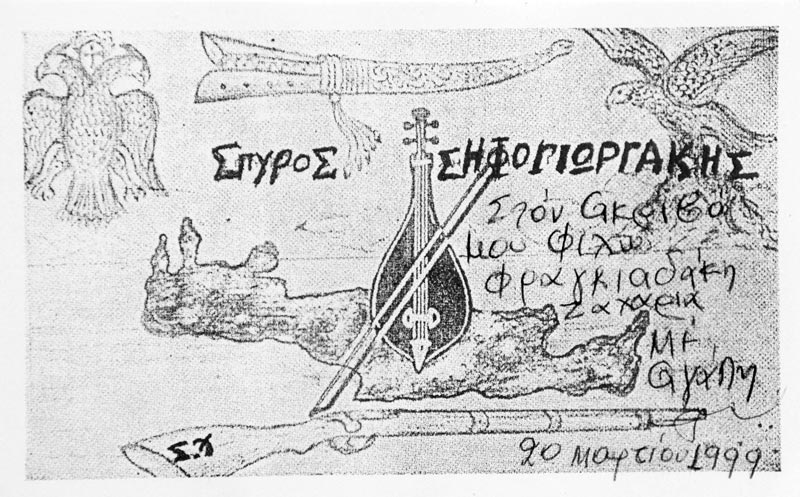 ΣΠΥΡΟΣ ΣΗΦΟΓΙΩΡΓΑΚΗΣ
Στόν Ακριβό
μου Φίλο
Φραγκιαδάκη
Ζαχαρία
Μέ
Αγάπη
20 Μαρτίου 1999